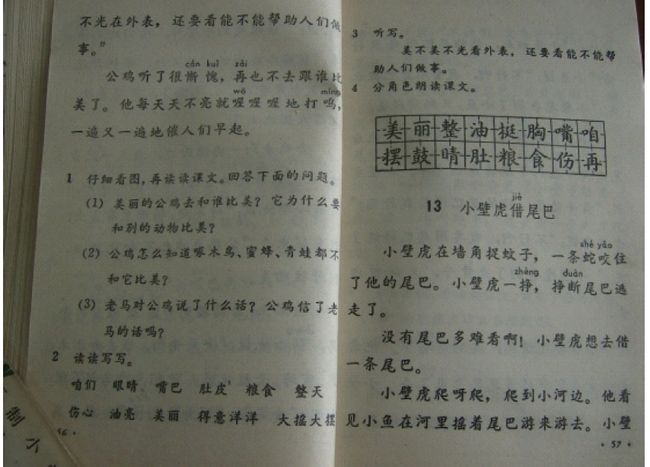 不光在外表，还要看能不能帮助人们做
事。”
cán kuì zài
公鸡听了很惭愧，再也不去跟谁比
wō míng
美了。他每天天不亮就喔喔喔地打鸣，
一遍又一遍地催人们早起。
1 仔细看图，再读读课文。回答下面的问题。
(1) 美丽的公鸡去和谁比美？它为什么要
和别的动物比美？
(2) 公鸡怎么知道啄木鸟、蜜蜂、青蛙都不
和它比美？
(3) 老马对公鸡说了什么话？公鸡信了老
马的话吗？
2 读读写写。
咱们 眼睛 嘴巴 肚皮 粮食 整天
伤心 油亮 美丽 得意洋洋 大摇大摆
56
3 听写。
美不美不光看外表，还要看能不能帮
助人们做事。
4 分角色朗读课文。
美丽整油挺胸嘴咱
摆鼓睛肚粮食伤再
jiè
13 小壁虎借尾巴
shé yǎo
小壁虎在墙角捉蚊子，一条蛇咬住
zhèng duàn
了他的尾巴。小壁虎一挣，挣断尾巴逃
走了。
没有尾巴多难看啊！小壁虎想去借
一条尾巴。
小壁虎爬呀爬，爬到小河边。他看
见小鱼在河里摇着尾巴游来游去。小壁
57